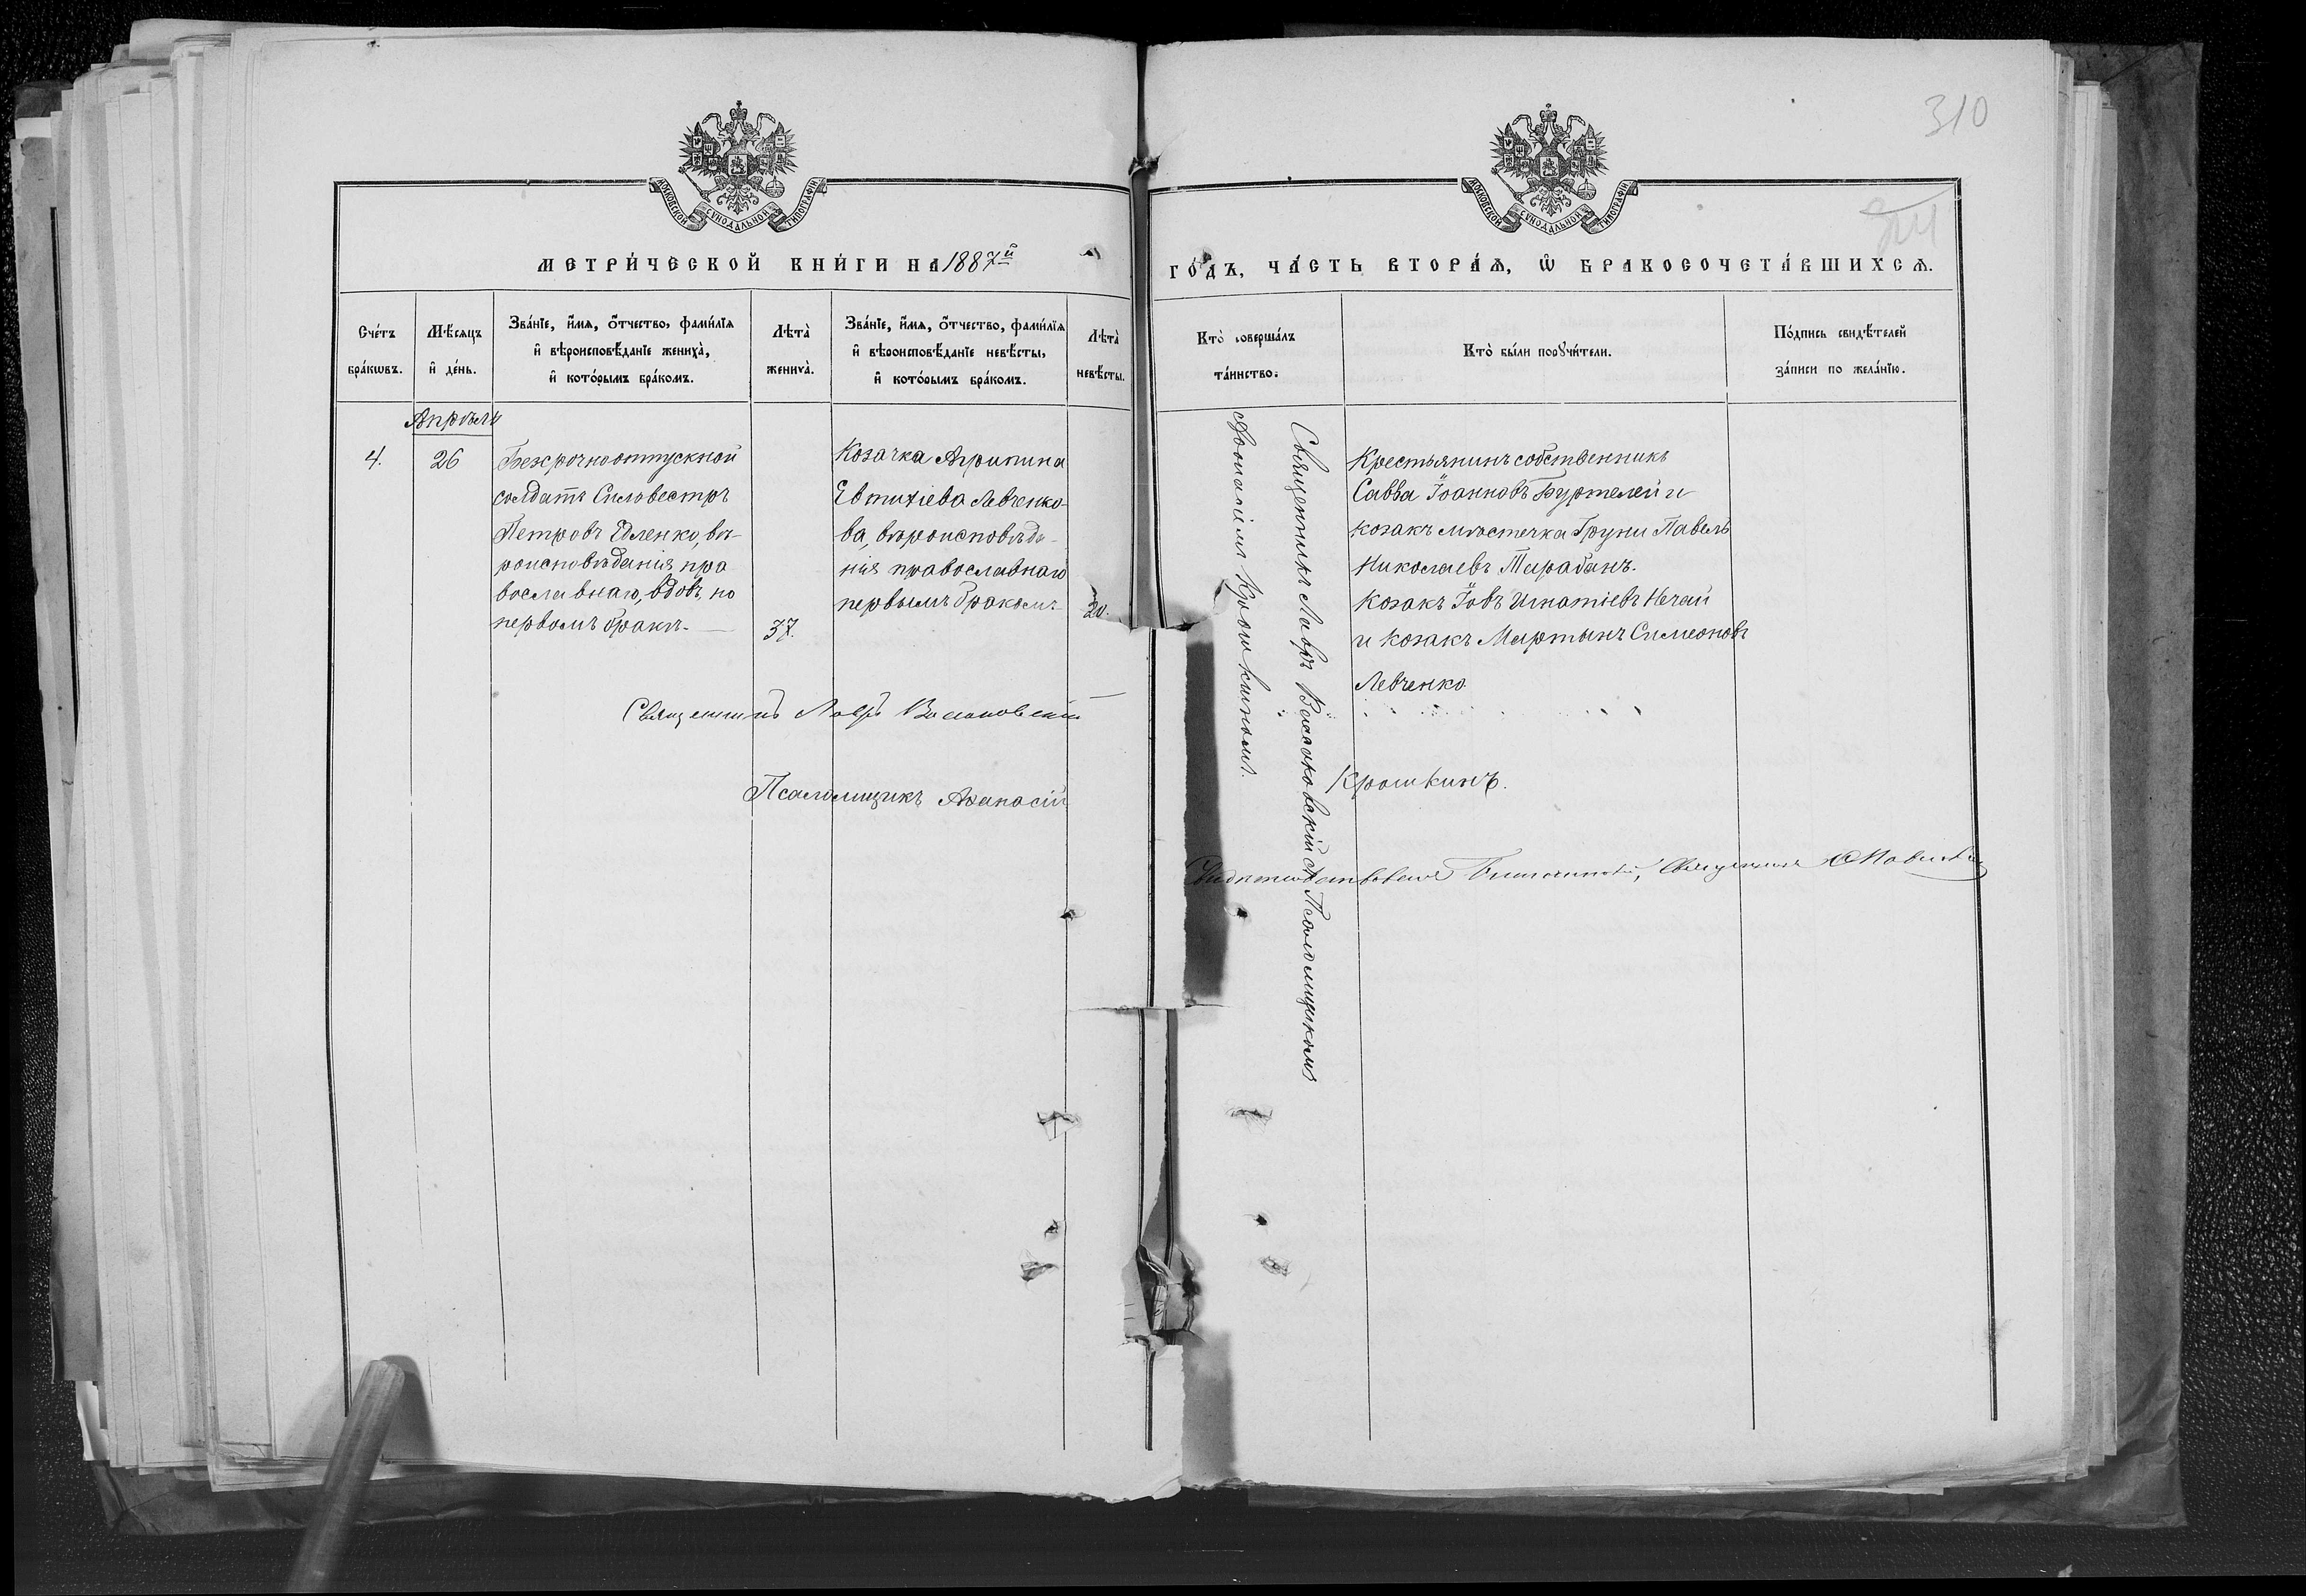 310
МОСКОВСКОЙ СѴНОДАЛЬНОЙ ТИПОГРАФІИ
МОСКОВСКОЙ СѴНОДАЛЬНОЙ ТИПОГРАФІИ
МЕТРИ́ЧЕСКОЙ КНИ́ГИ НА 1887й
ГО́ДЪ, ЧА́СТЬ ВТОРА́Ѧ, Ѡ҆ БРАКОСОЧЕТА́ВШИХСѦ.
Сче́тъ
бра́кѡвъ.
Мѣ́сяцъ
и҆ де́нь.
Зва́нїе, и҆́мѧ, ѻ҆́тчество, фамѝлїѧ
и҆ вѣроисповѣ́данїе жениха̀,
и҆ кото́рымъ бра́комъ.
Лѣта̀
жениха̀.
Зва́нїе, и҆́мѧ, ѻ҆́тчество, фамѝлїѧ
и҆ вѣроисповѣ́данїе невѣ́сты,
и҆ кото́рымъ бра́комъ.
Лѣта̀
невѣ́сты.
Кто̀ соверша́лъ
та́инство.
Кто̀ бы́ли порꙋчи́тели.
По́дпись свидѣ́телей
за́писи по жела́нїю.
Апрѣль
4.
26
Безсрочноотпускной
солдатъ Сильвестръ
Петровъ Едленко, вѣ-
роисповѣданія пра
вославнаго, вдовъ, по
первомъ бракѣ.
37.
Козачка Агрипина
Евтихіева Левченко-
ва, вѣроисповѣда-
нія православнаго
первымъ бракомъ
20.
Священникъ Лавръ Волковскій съ Псаломщикомъ
Афонасіемъ Крошкинымъ.
Крестьянинъ собственникъ
Савва Іоанновъ Буртелей и
козакъ мѣстечка Груни Павелъ
Николаевъ Тарабанъ.
Козакъ Іовъ Игнатіевъ Нечай
и козакъ Мартынъ Симеоновъ
Левченко
Священникъ Лавръ
Псаломщикъ Афанасій
Крошкинъ.